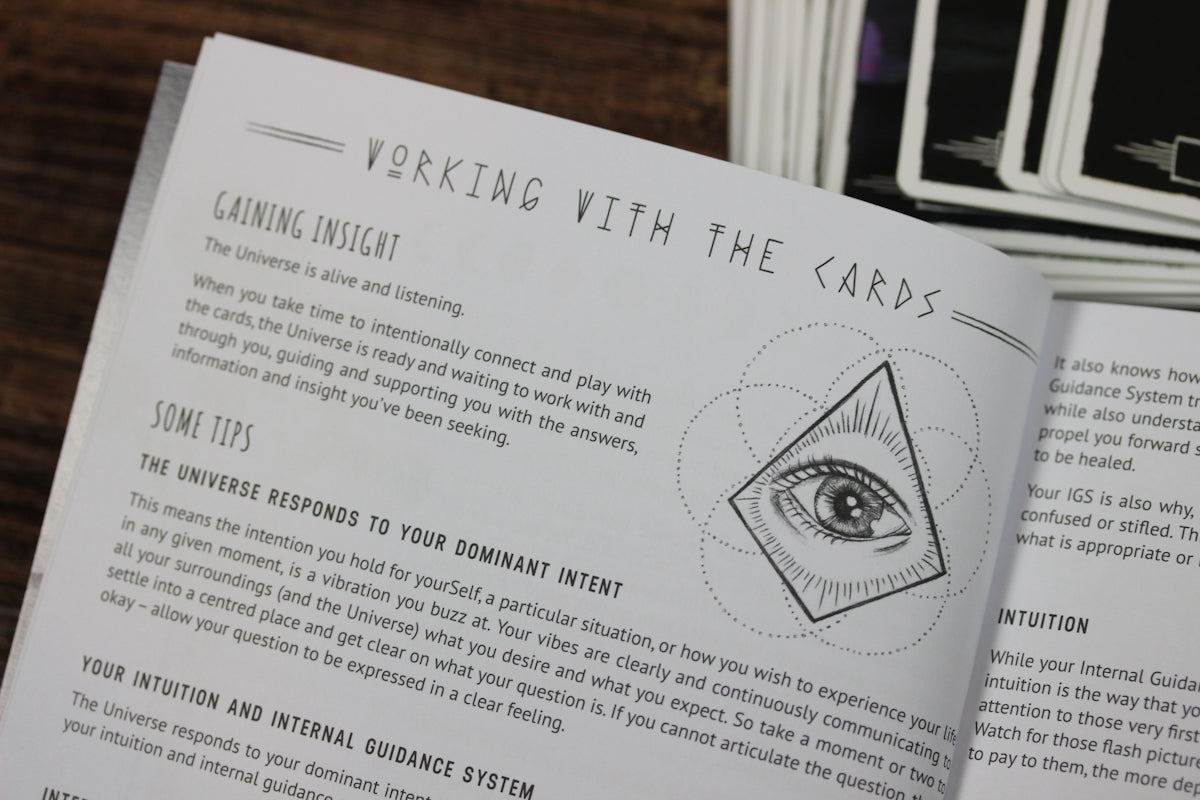 WORKING WITH THE CARDS
GAINING INSIGHT
The Universe is alive and listening.
When you take time to intentionally connect and play with
the cards, the Universe is ready and waiting to work with and
through you, guiding and supporting you with the answers,
information and insight you've been seeking.
SOME TIPS
THE UNIVERSE RESPONDS TO YOUR DOMINANT INTENT
This means the intention you hold for yourSelf, a particular situation, or how you wish to experience your life
in any given moment, is a vibration you buzz at. Your vibes are clearly and continuously communicating to
all your surroundings (and the Universe) what you desire and what you expect. So take a moment or two to
settle into a centred place and get clear on what your question is. If you cannot articulate the question,
okay – allow your question to be expressed in a clear feeling.
YOUR INTUITION AND INTERNAL GUIDANCE SYSTEM
The Universe responds to your dominant
your intuition and internal
It also knows how
Guidance System
while also
propel you forward
to be healed.
Your IGS is also why,
confused or stifled.
what is appropriate or
INTUITION
While your Internal
intuition is the way that
attention to those very first
Watch for those flash
to pay to them, the more